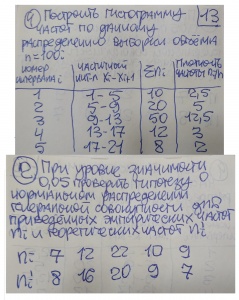 ④ Построить гистограмму 13
частот по данному
распределению выборки объёма
n=100:
номер интервала i частичный инт-л xi-xi+1 Σni плотность частоты ni/h
1 1-5 10 2,5
2 5-9 20 5
3 9-13 50 12,5
4 13-17 12 3
5 17-21 8 2
② При уровне значимости
0,05 проверить гипотезу о
нормальном распределении
генеральной совокупности для
приведённых эмпирических частот
ni и теоретических частот ni'
ni 7 12 22 10 9
ni' 8 16 20 9 7